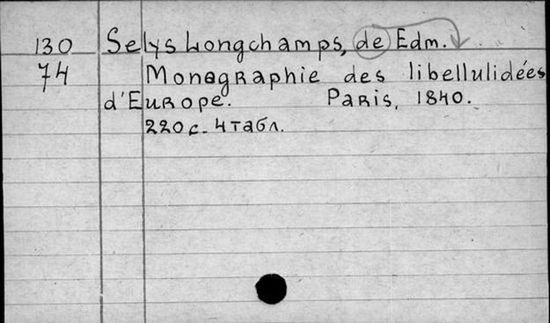 130 Selys Longchamps, de Edm.
74 Monographie des libellulidées
d'Europe. Paris, 1840.
220 с. 4 табл.